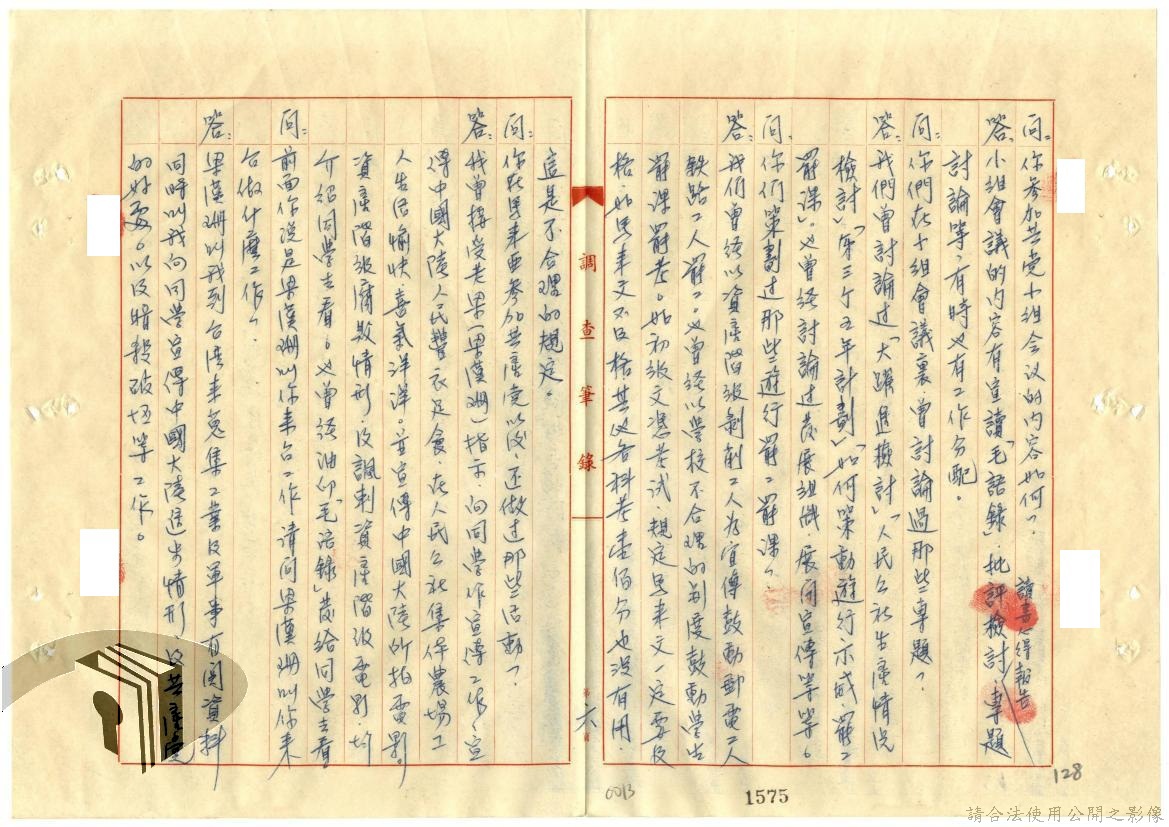 問:你參加共党小組会议的内容如何?
答:小組會議的内容有宣讀「毛語錄」.批評檢討、專題
讀書心得報告
討論等,有時也有工作分配。
問:你們在小組會議裏曾討論過那些专題?
答:我們曾討論过「大躍進檢討」「人民公社生產情况
檢討」「第三个五年計劃」「如何策動遊行、示威、罷工
罷课」。也曾经討論过发展組織.展開宣傳等等。
問.你们策劃过那些遊行罷工罷课?
答:我们曾经以資產階級剝削工人为宣傳鼓動郵電工人
鉄路工人罷工。也曾经以學校不合理的制度鼓動學生
罷课罷考。如初级文憑考试.規定馬来文一定要及
格.如馬来文不及格.其他各科考壹佰分也没有用.
調查筆錄
第六頁
這是不合理的規定。
問:你在馬来亜参加共產党以後还做过那些活動?
答:我曾接受老梁(梁漢珊)指示.向同学作宣傳工作,宣
傳中國大陸人民豐衣足食.在人民公社集体農場工
人生活愉快.喜氣洋洋。並宣傳中國大陸所拍電影。
資產階級腐敗情形.及諷刺資產階级電影.均
介紹同學去看。也曾经油印「毛语錄」发給同學去看
問:前面你说是梁漢珊叫你来台工作请问梁漢珊叫你来
台做什麼工作?
答:梁漢珊叫我到台湾来蒐集工業及軍事有関資料
同時叫我向同学宣傳中國大陸進步情形,及共產党
的好處。以及暗殺破坏等工作。
128
0013
1575
請合法使用公開之影像